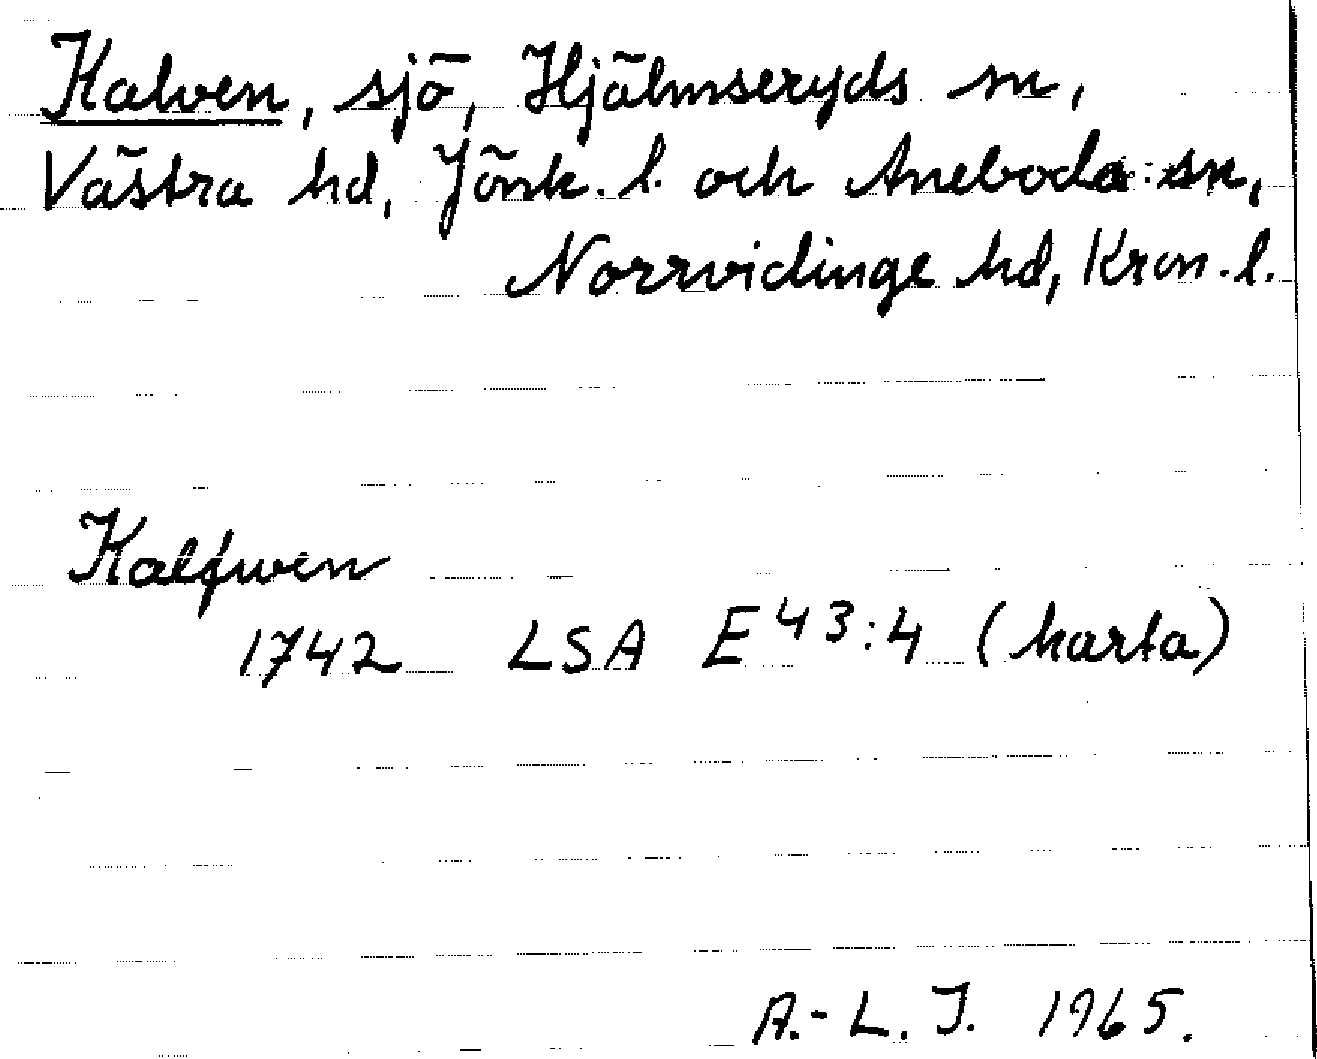 Kalven, sjö, Hjälmseryds sn,
Västra hd, Jönk. l. och Aneboda sn,
Norrvidinge hd, Kron. l.
Kalfwen
1742 LSA E43:4 (karta)
A.-L. J. 1965.